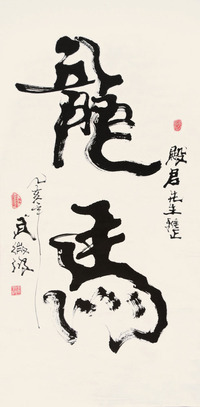 龍馬
殿君先生雅正
乙亥年
武